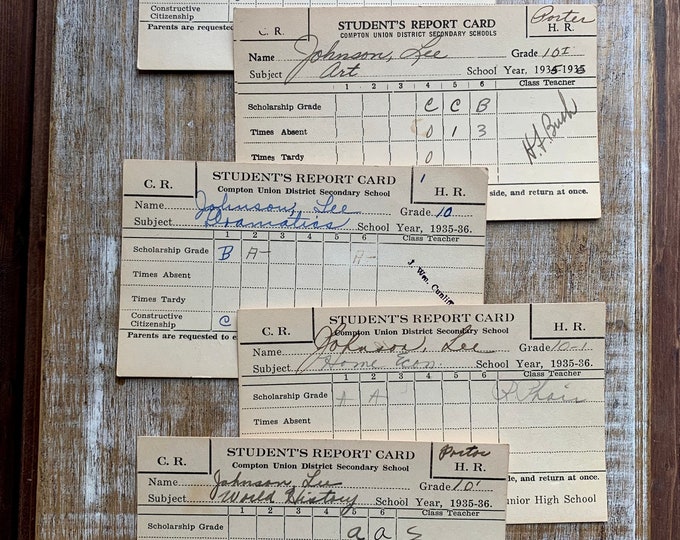 Constructive
Citizenship
Parents are requested
C. R. STUDENT'S REPORT CARD Porter
COMPTON UNION DISTRICT SECONDARY SCHOOLS H. R.
Name Johnson, Lee Grade 10I
Subject Art School Year, 1935-1936
1 2 3 4 5 6 Class Teacher
Scholarship Grade C C B
Times Absent 0 1 3
Times Tardy 0
side, and return at once.
C. R. STUDENT'S REPORT CARD 1
Compton Union District Secondary School H. R.
Name Johnson, Lee Grade 10
Subject Dramatics School Year, 1935-36.
1 2 3 4 5 6 Class Teacher
Scholarship Grade B A- A-
Times Absent
Times Tardy
J. Wm.
Constructive
Citizenship C
Parents are requested to
C. R. STUDENT'S REPORT CARD
Compton Union District Secondary School H. R.
Name Johnson, Lee Grade 10-1
Subject Home Econ. School Year, 1935-36.
1 2 3 4 5 6 Class Teacher
Scholarship Grade A A-
Times Absent
side, and return at once.
unior High School
C. R. STUDENT'S REPORT CARD Porter
Compton Union District Secondary School H. R.
Name Johnson, Lee Grade 10'
Subject World History School Year, 1935-36.
1 2 3 4 5 6 Class Teacher
Scholarship Grade a a